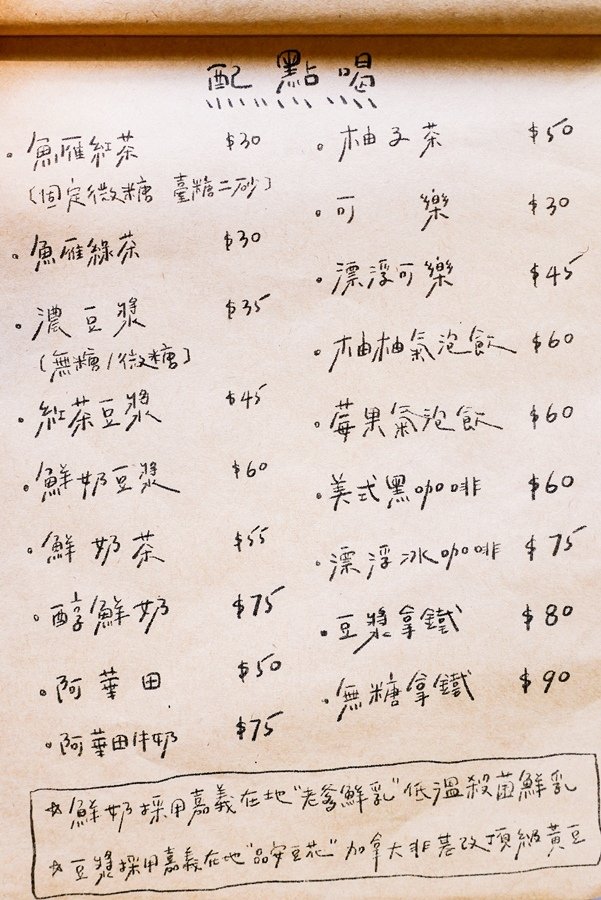 配點喝
魚雁紅茶 $30
(固定微糖 臺糖二砂)
魚雁綠茶 $30
濃豆漿 $35
(無糖/微糖)
紅茶豆漿 $45
鮮奶豆漿 $60
鮮奶茶 $55
醇鮮奶 $75
阿華田 $50
阿華田牛奶 $75
柚子茶 $50
可樂 $30
漂浮可樂 $45
柚柚氣泡飲 $60
莓果氣泡飲 $60
美式黑咖啡 $60
漂浮冰咖啡 $75
豆漿拿鐵 $80
無糖拿鐵 $90
*鮮奶採用嘉義在地"老爹鮮乳"低溫殺菌鮮乳
*豆漿採用嘉義在地"品安豆花"加拿大非基改頂級黃豆